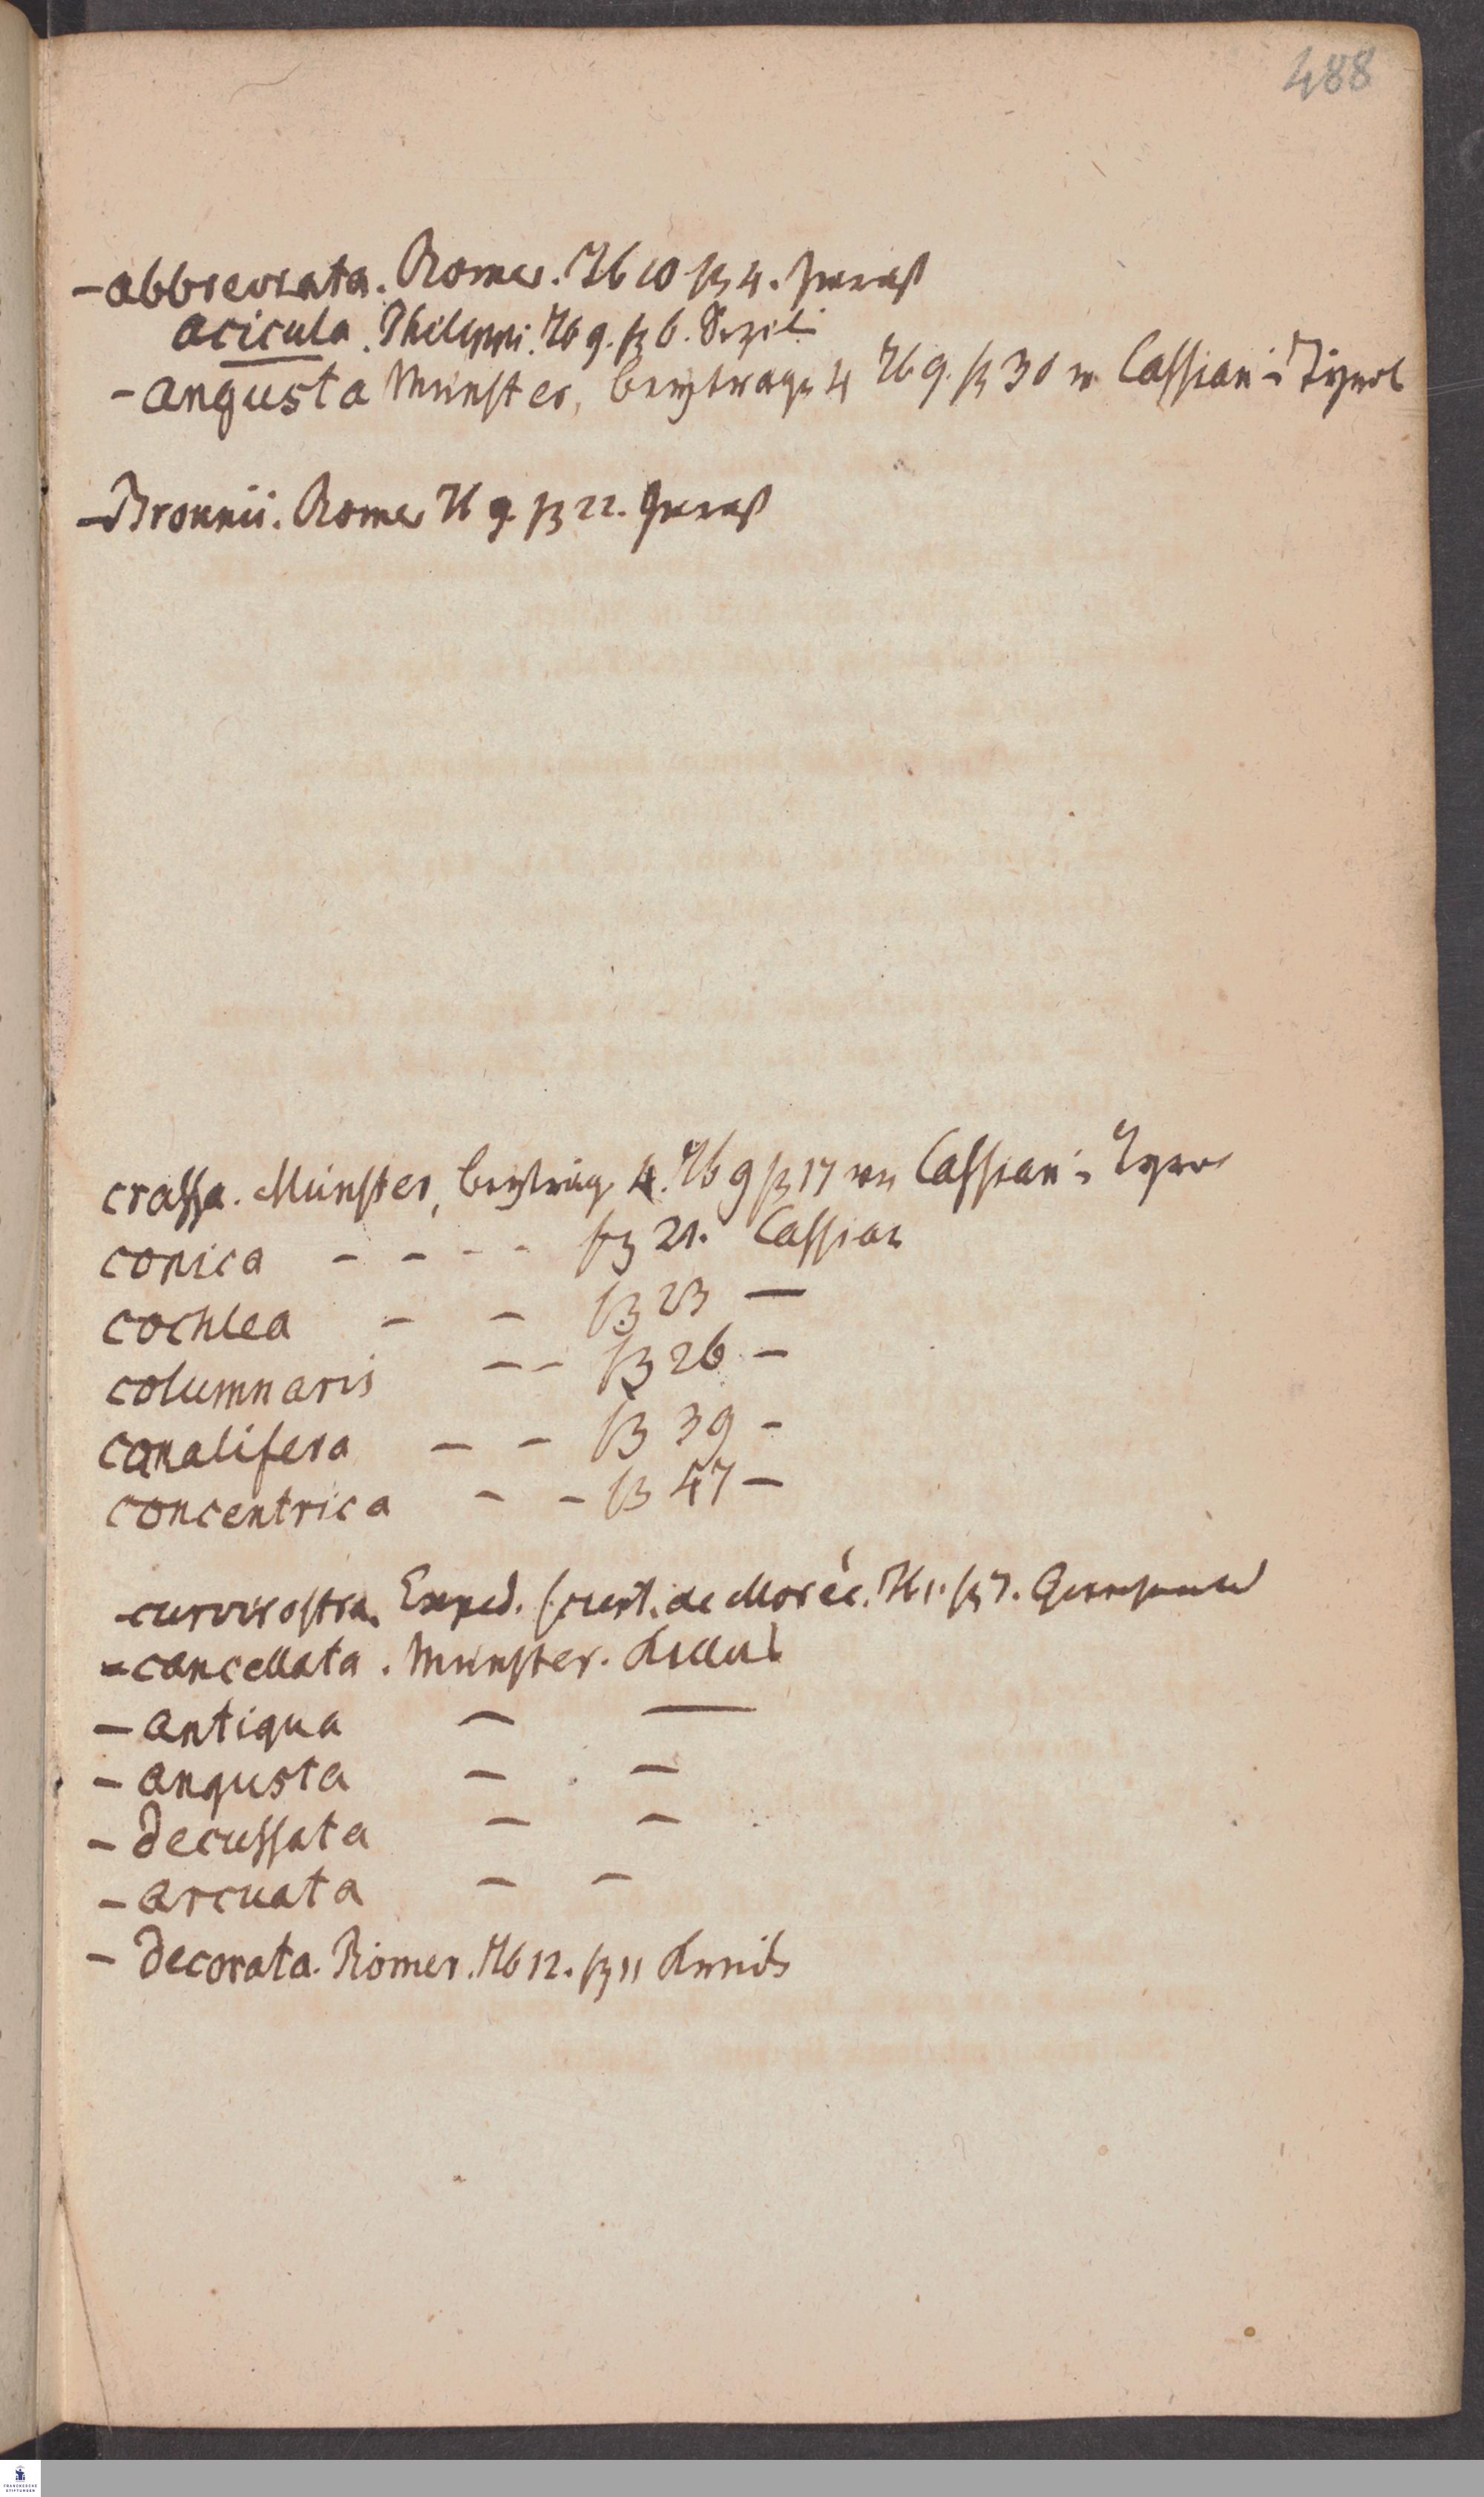 488
- abbreviata. Römer. Tb 10 fg 4.
acicula. Philippi. Tb 9. fg 6. Sizili
- angusta Münster, beytrage 4 Tb 9. fg 30 v. Cassian in Tyrol
- Bronnii. Römer Tb 9. fg 22.
crassa. Münster, beyträge 4. Tb 9 fg 17 von Cassian in Tyrol
conica - - - - fg 21. Cassian
cochlea - - fg 23 —
columnaris - - fg 26 -
canalifera - - fg 39 -
concentrica - - fg 47 -
- curvirostra. Exped. scient. de Moréé. Tb 1. fg 7.
- cancellata. Münster.
- antiqua - —
- angusta - -
- decussata - -
- arcuata - -
- decorata. Römer. Tb 12. fg 11
FRANCKESCHE STIFTUNGEN